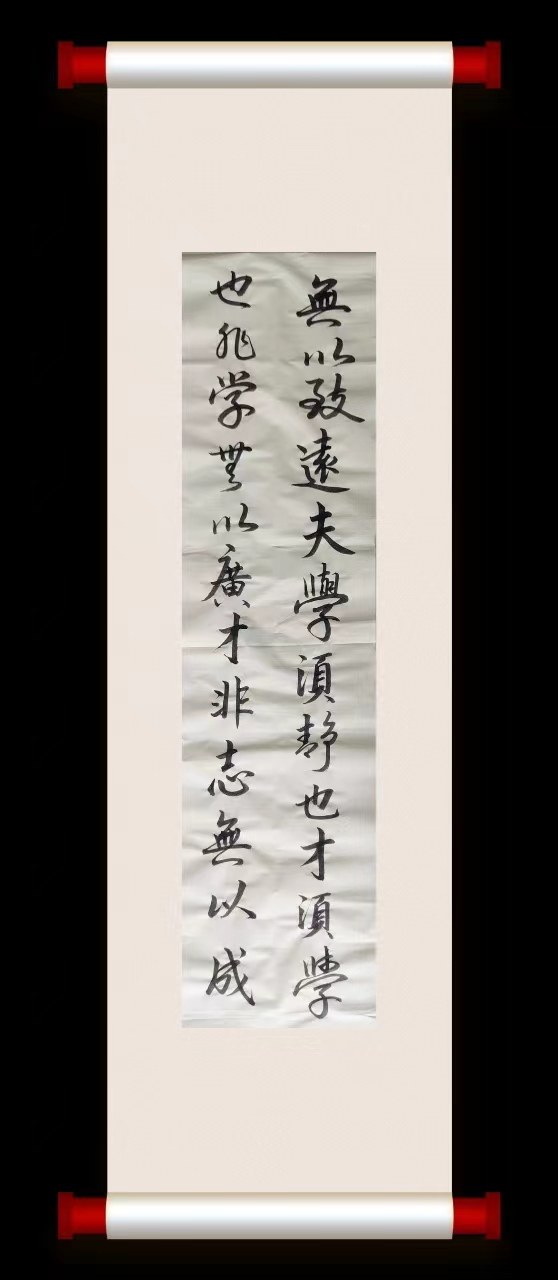 無以致遠夫學須静也才須學
也非学無以廣才非志無以成